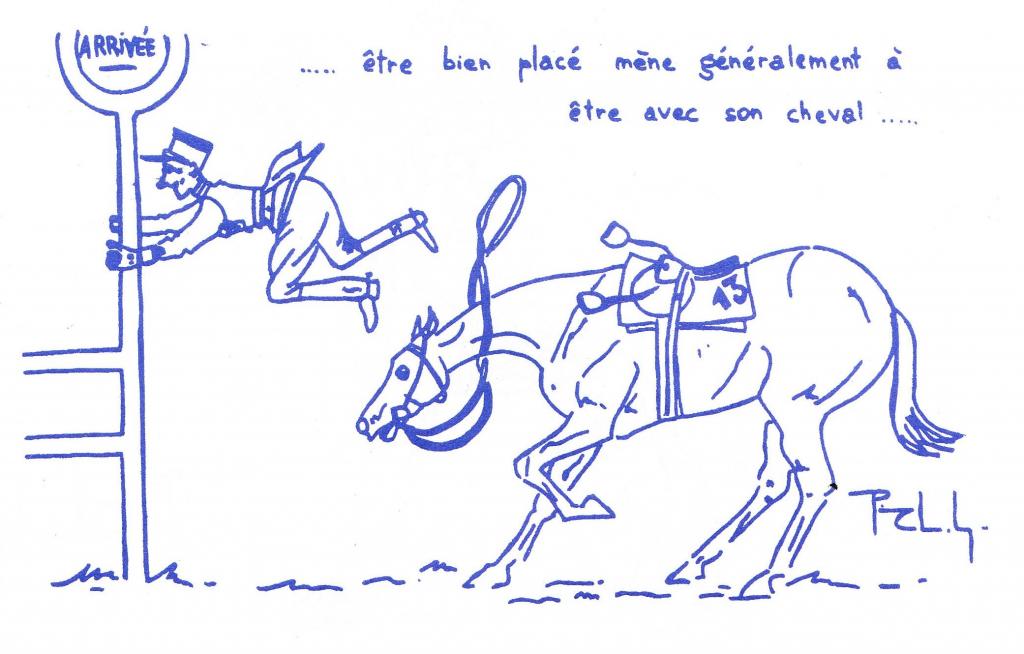 ARRIVÉE
..... être bien placé mène généralement à
être avec son cheval .....
13